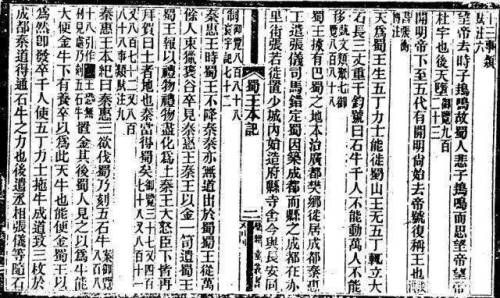 望帝去時子䳏鳴故蜀人悲子䳏鳴而思望帝望帝
杜宇也後天墮
開明帝下至五代有開明尚始去帝號復稱王也
天為蜀王生五丁力士能徙蜀山王無五丁輒立大
石長三丈重千鈞號曰石牛千人不能動萬人不能
移
蜀王據有巴蜀之地本治廣都樊鄉徙居成都秦惠
王遣張儀司馬錯定蜀因築成都而縣之成都在赤
里街張若徙置少城內始造府縣寺舍今與長安同
制
蜀王本記
秦惠王時蜀王不降秦秦亦無道出於蜀蜀王從萬
餘人東獵褒谷卒見秦惠王秦王以金一笥遺蜀王
蜀王報以禮物禮物盡化為土秦王大怒臣下皆再
拜賀曰土者地也秦當得蜀矣
秦惠王本紀曰秦惠王欲伐蜀乃刻五石牛
置金其後蜀人見之以為牛能
大便金牛下有養卒以為此天牛也能便金蜀王以
為然即發卒千人使五丁力士拖牛成道致三枚於
成都秦道得通石牛之力也後遣丞相張儀等隨石